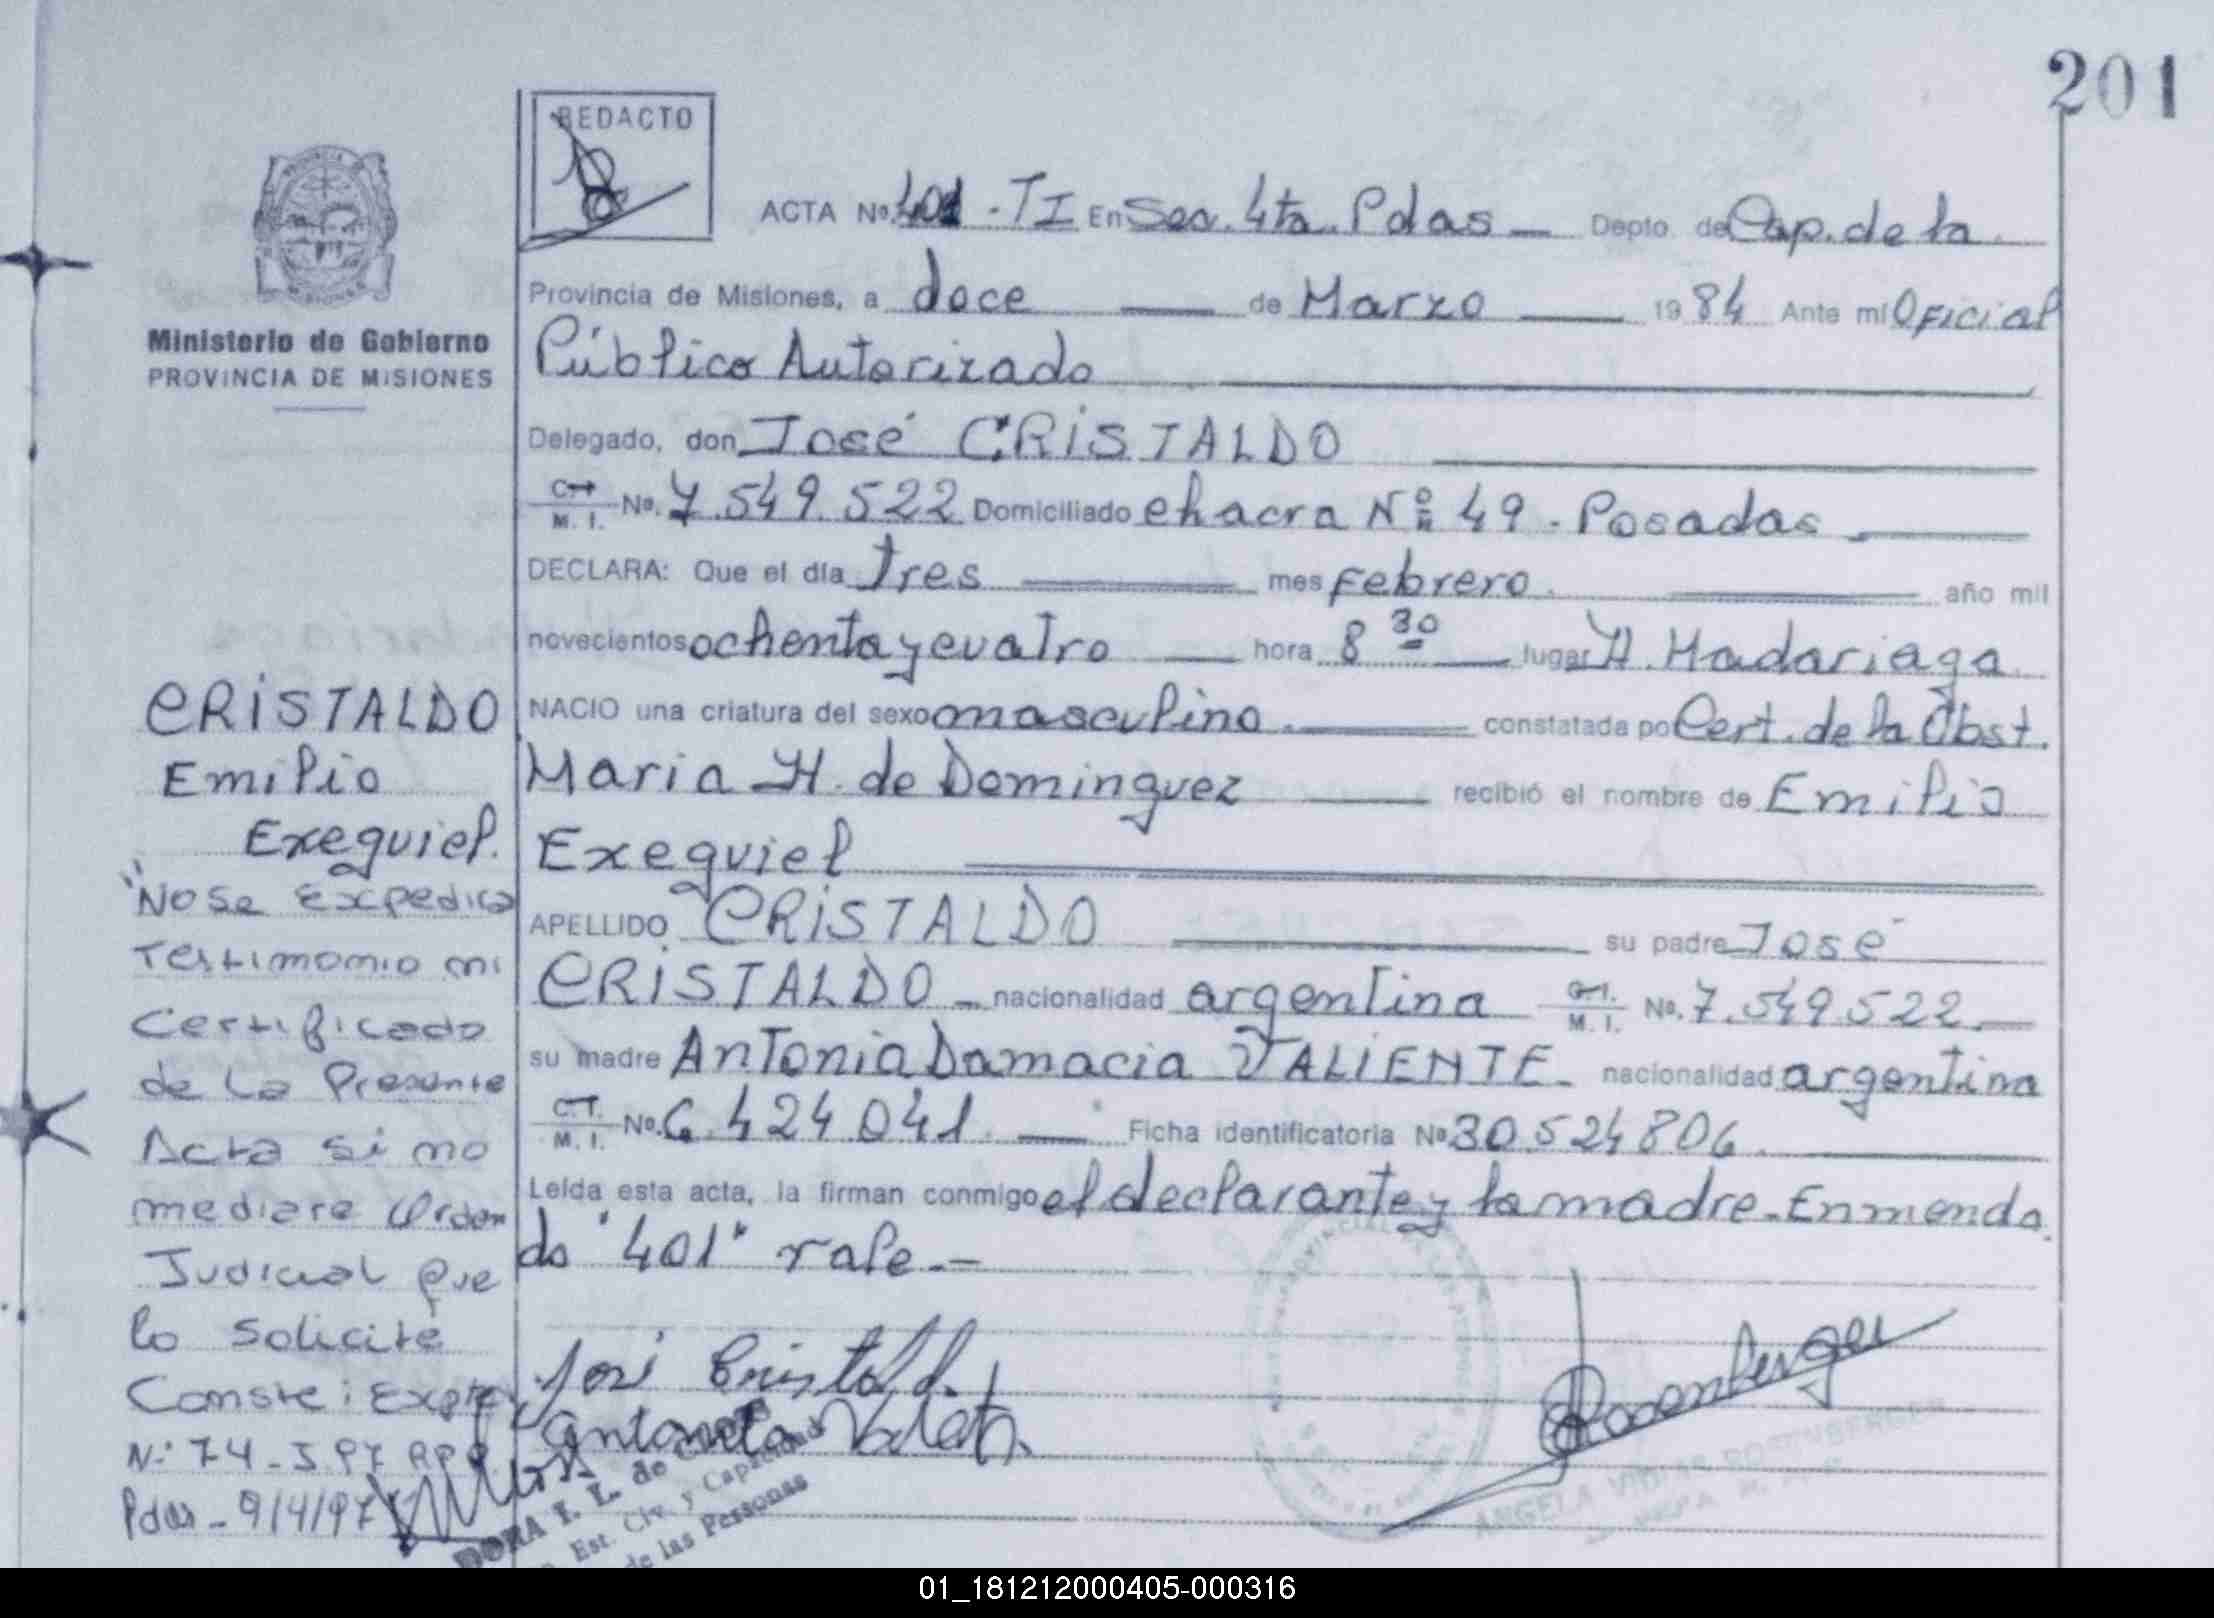 201
REDACTO
ACTA No. 401 - TI En Sec. 4ta. Pdas — Depto de Cap. de la
Provincia de Misiones, a doce — de Marzo — 1984 Ante mi Oficial
Público Autorizado
Ministerio de Gobierno
PROVINCIA DE MISIONES
Delegado, don José CRISTALDO
C.I. M. I. No. 7.549.522 Domiciliado chacra Nº 49 - Posadas
DECLARA: Que el día tres — mes Febrero — año mil
novecientos ochenta y cuatro — hora 8 30 — lugar H. Madariaga
NACIO una criatura del sexo masculino. — constatada po Cert. de la Obst.
Maria H. de Dominguez — recibió el nombre de Emilio
Exequiel
APELLIDO CRISTALDO — su padre José
CRISTALDO — nacionalidad argentina C.I. M. I. No. 7.549.522
su madre Antonia Damacia VALIENTE - nacionalidad argentina
C.I. M. I. No. 6.424.041 — Ficha identificatoria No 30.524.806
Leída esta acta, la firman conmigo el declarante y la madre - Enmenda
do "401" vale.-
José Cristaldo
Rosenberger
ANGELA VIDIAS ROSENBERGER
CRISTALDO
Emilio
Exequiel.
"No se Expedira
Testimonio ni
Certificado
de la Presente
Acta si no
mediare Orden
Judicial que
lo solicite
Conste: Expte
N: 74-J 97 RPP
Pdas - 9/4/97
DORA I. L. de
Est. Civ. y Capacidad
de las Personas
01_181212000405-000316